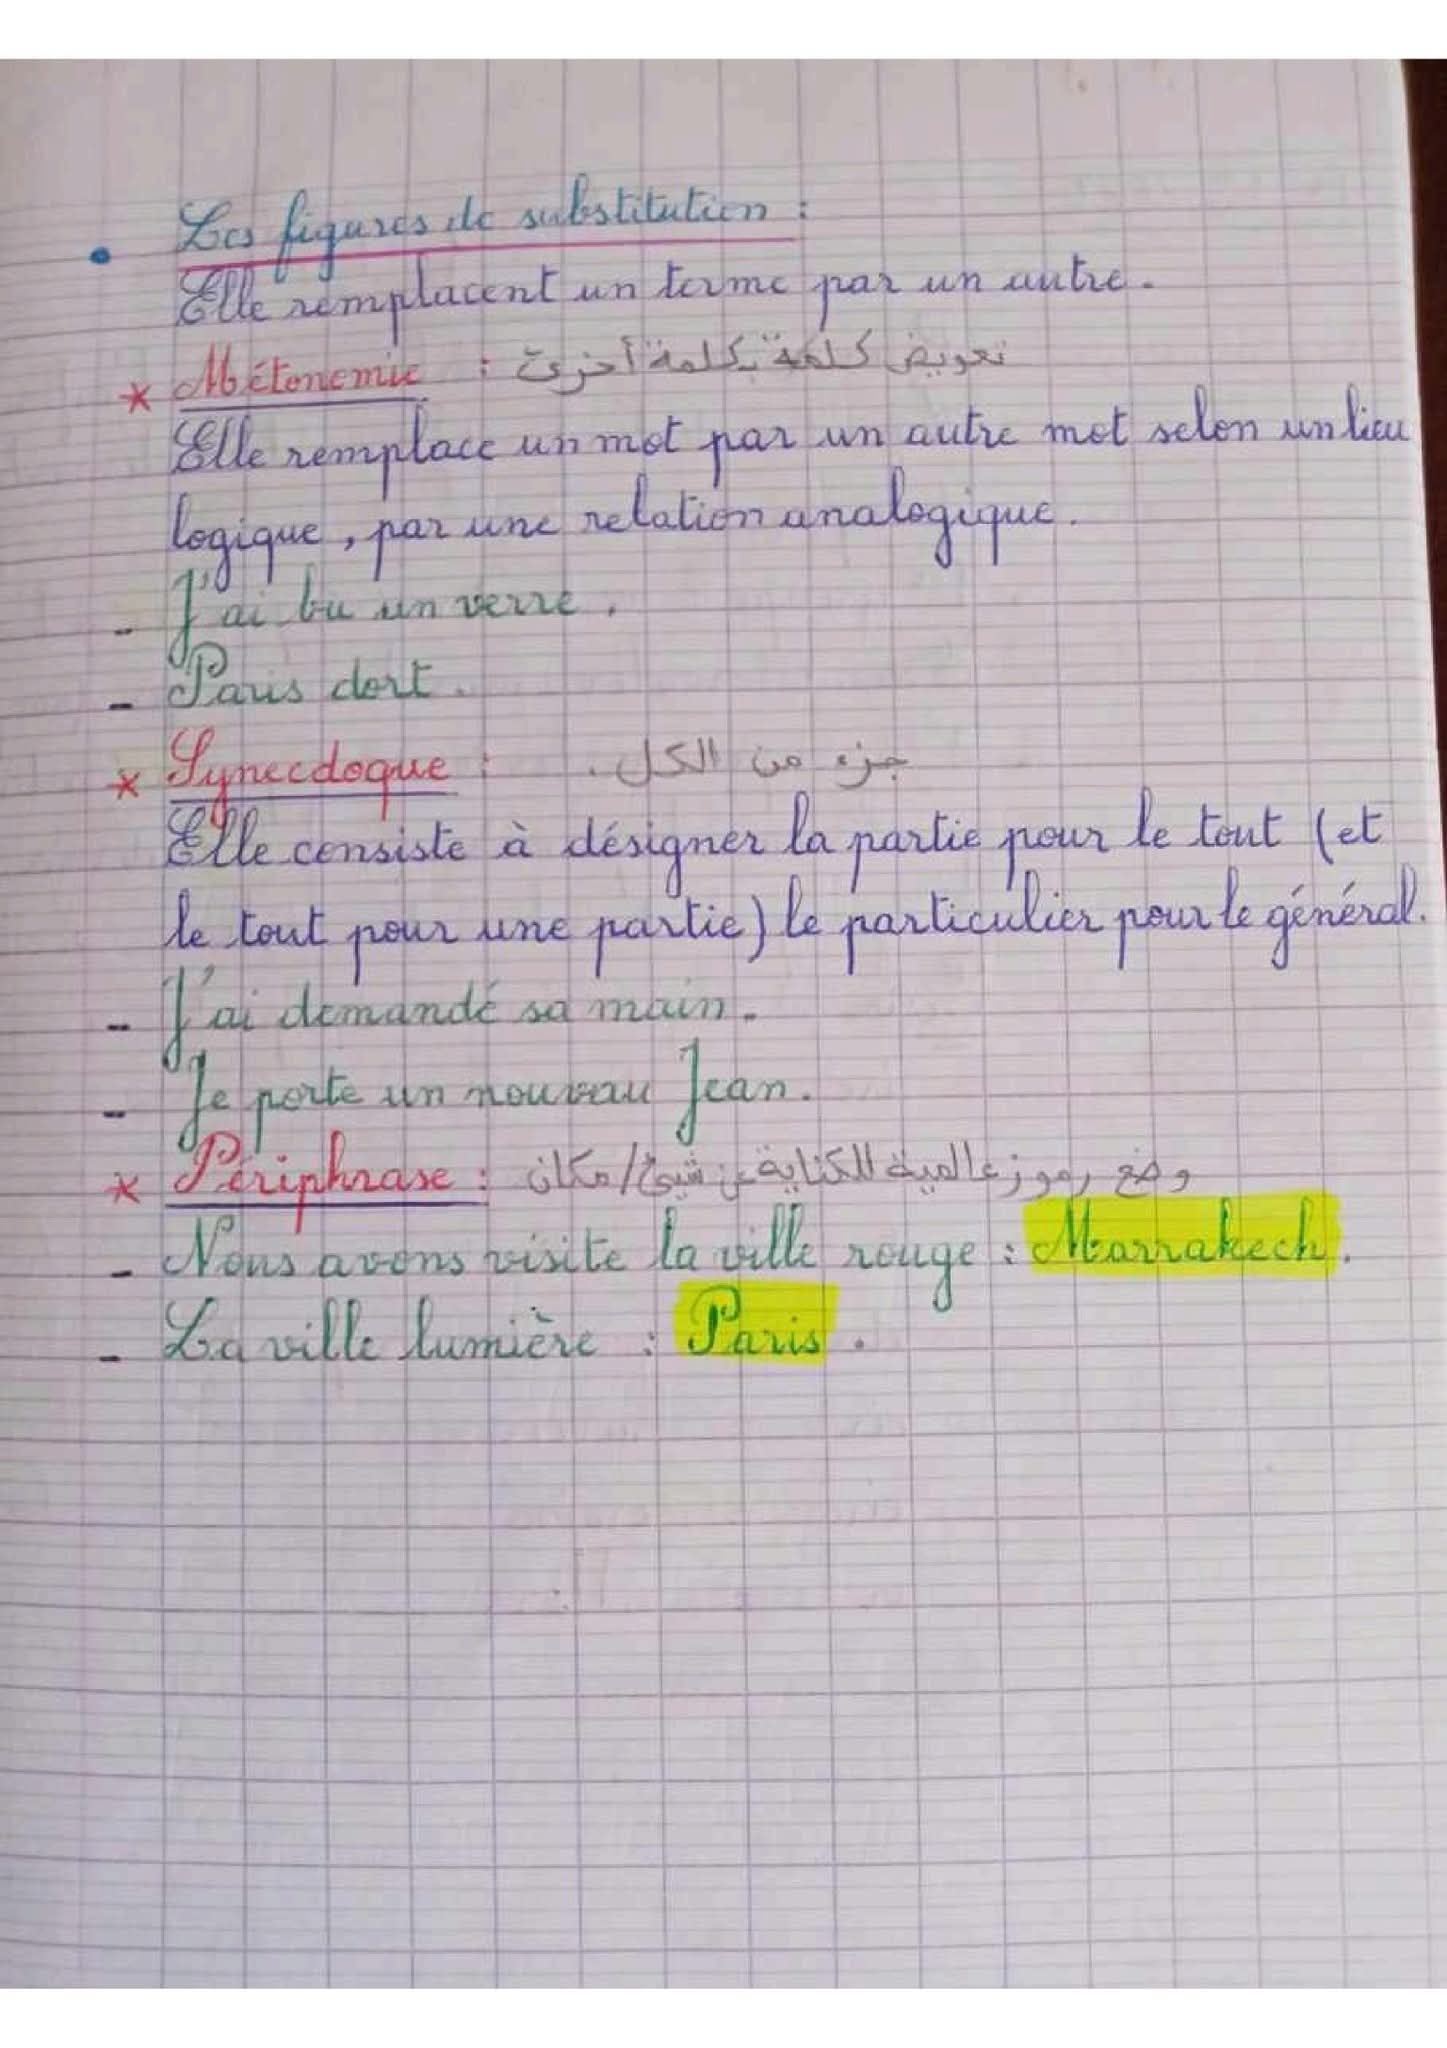 Les figures de substitution :
Elle remplacent un terme par un autre.
Métonemie : تعويض كلمة بكلمة أخرى
Elle remplace un mot par un autre mot selon un lieu
logique, par une relation analogique.
- J'ai bu un verre.
- Paris dort.
Synecdoque : جزء من الكل.
Elle consiste à désigner la partie pour le tout (et
le tout pour une partie) le particulier pour le général.
- J'ai demandé sa main.
- Je porte un nouveau Jean.
Périphrase : وضع رموز عالمية للكناية عن شيئ/مكان
- Nous avons visite la ville rouge : Marrakech.
- La ville lumière : Paris.